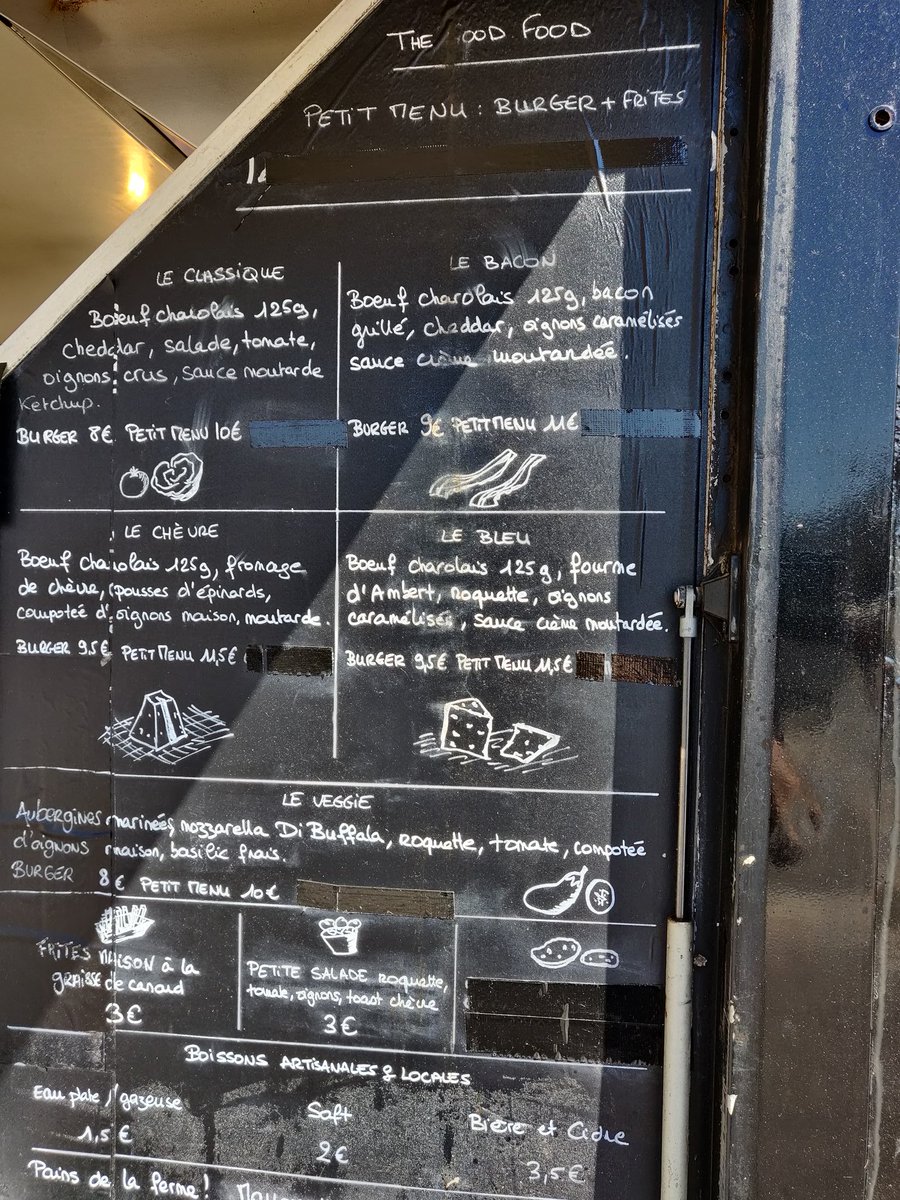 THE OOD FOOD
PETIT MENU : BURGER + FRITES
LE CLASSIQUE
Boeuf charolais 125g,
cheddar, salade, tomate,
oignons crus, sauce moutarde
Ketchup.
BURGER 8€ PETIT MENU 10€
LE BACON
Boeuf charolais 125g, bacon
grillé, cheddar, oignons caramélisés
sauce crème moutardée.
BURGER 9€ PETIT MENU 11€
LE CHÈVRE
Boeuf charolais 125g, fromage
de chèvre, pousses d'épinards,
compotée d'oignons maison, moutarde.
BURGER 9,5€ PETIT MENU 11,5€
LE BLEU
Boeuf charolais 125g, fourme
d'Ambert, roquette, oignons
caramélisés, sauce crème moutardée.
BURGER 9,5€ PETIT MENU 11,5€
LE VEGGIE
Aubergines marinées, mozzarella Di Buffala, roquette, tomate, compotée
d'oignons maison, basilic frais.
BURGER 8€ PETIT MENU 10€
FRITES MAISON à la
graisse de canard
3€
PETITE SALADE roquette,
tomate, oignons, toast chèvre
3€
BOISSONS ARTISANALES & LOCALES
Eau plate / gazeuse
1,5€
Soft
2€
Bière et Cidre
3,5€
Pains de la ferme !